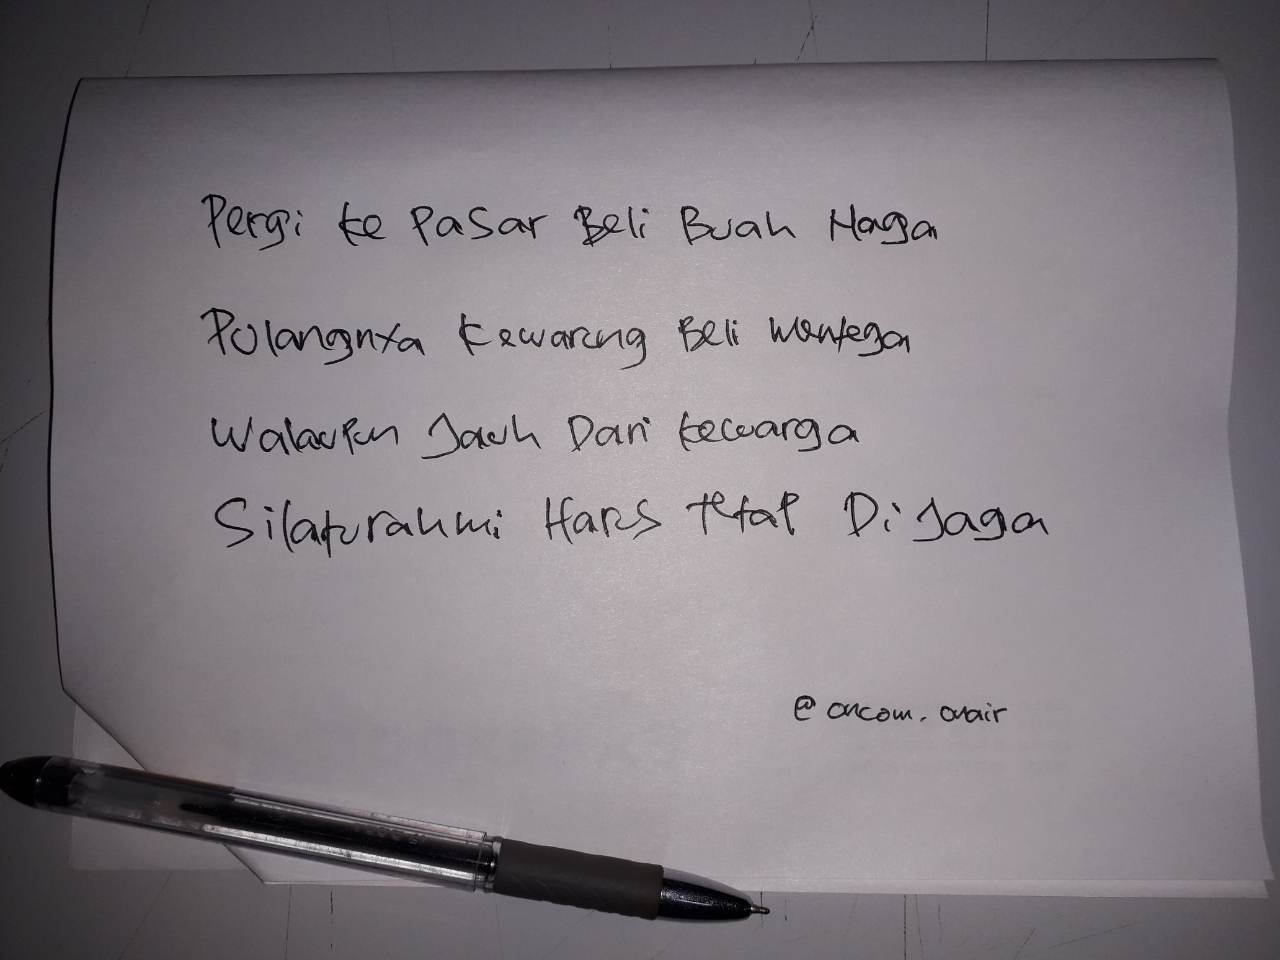 Pergi ke Pasar Beli Buah Naga
Pulangnya Kewarung Beli Mentega
Walaupun Jauh Dari keluarga
Silaturahmi Harus tetap Di Jaga
@oncom.onair